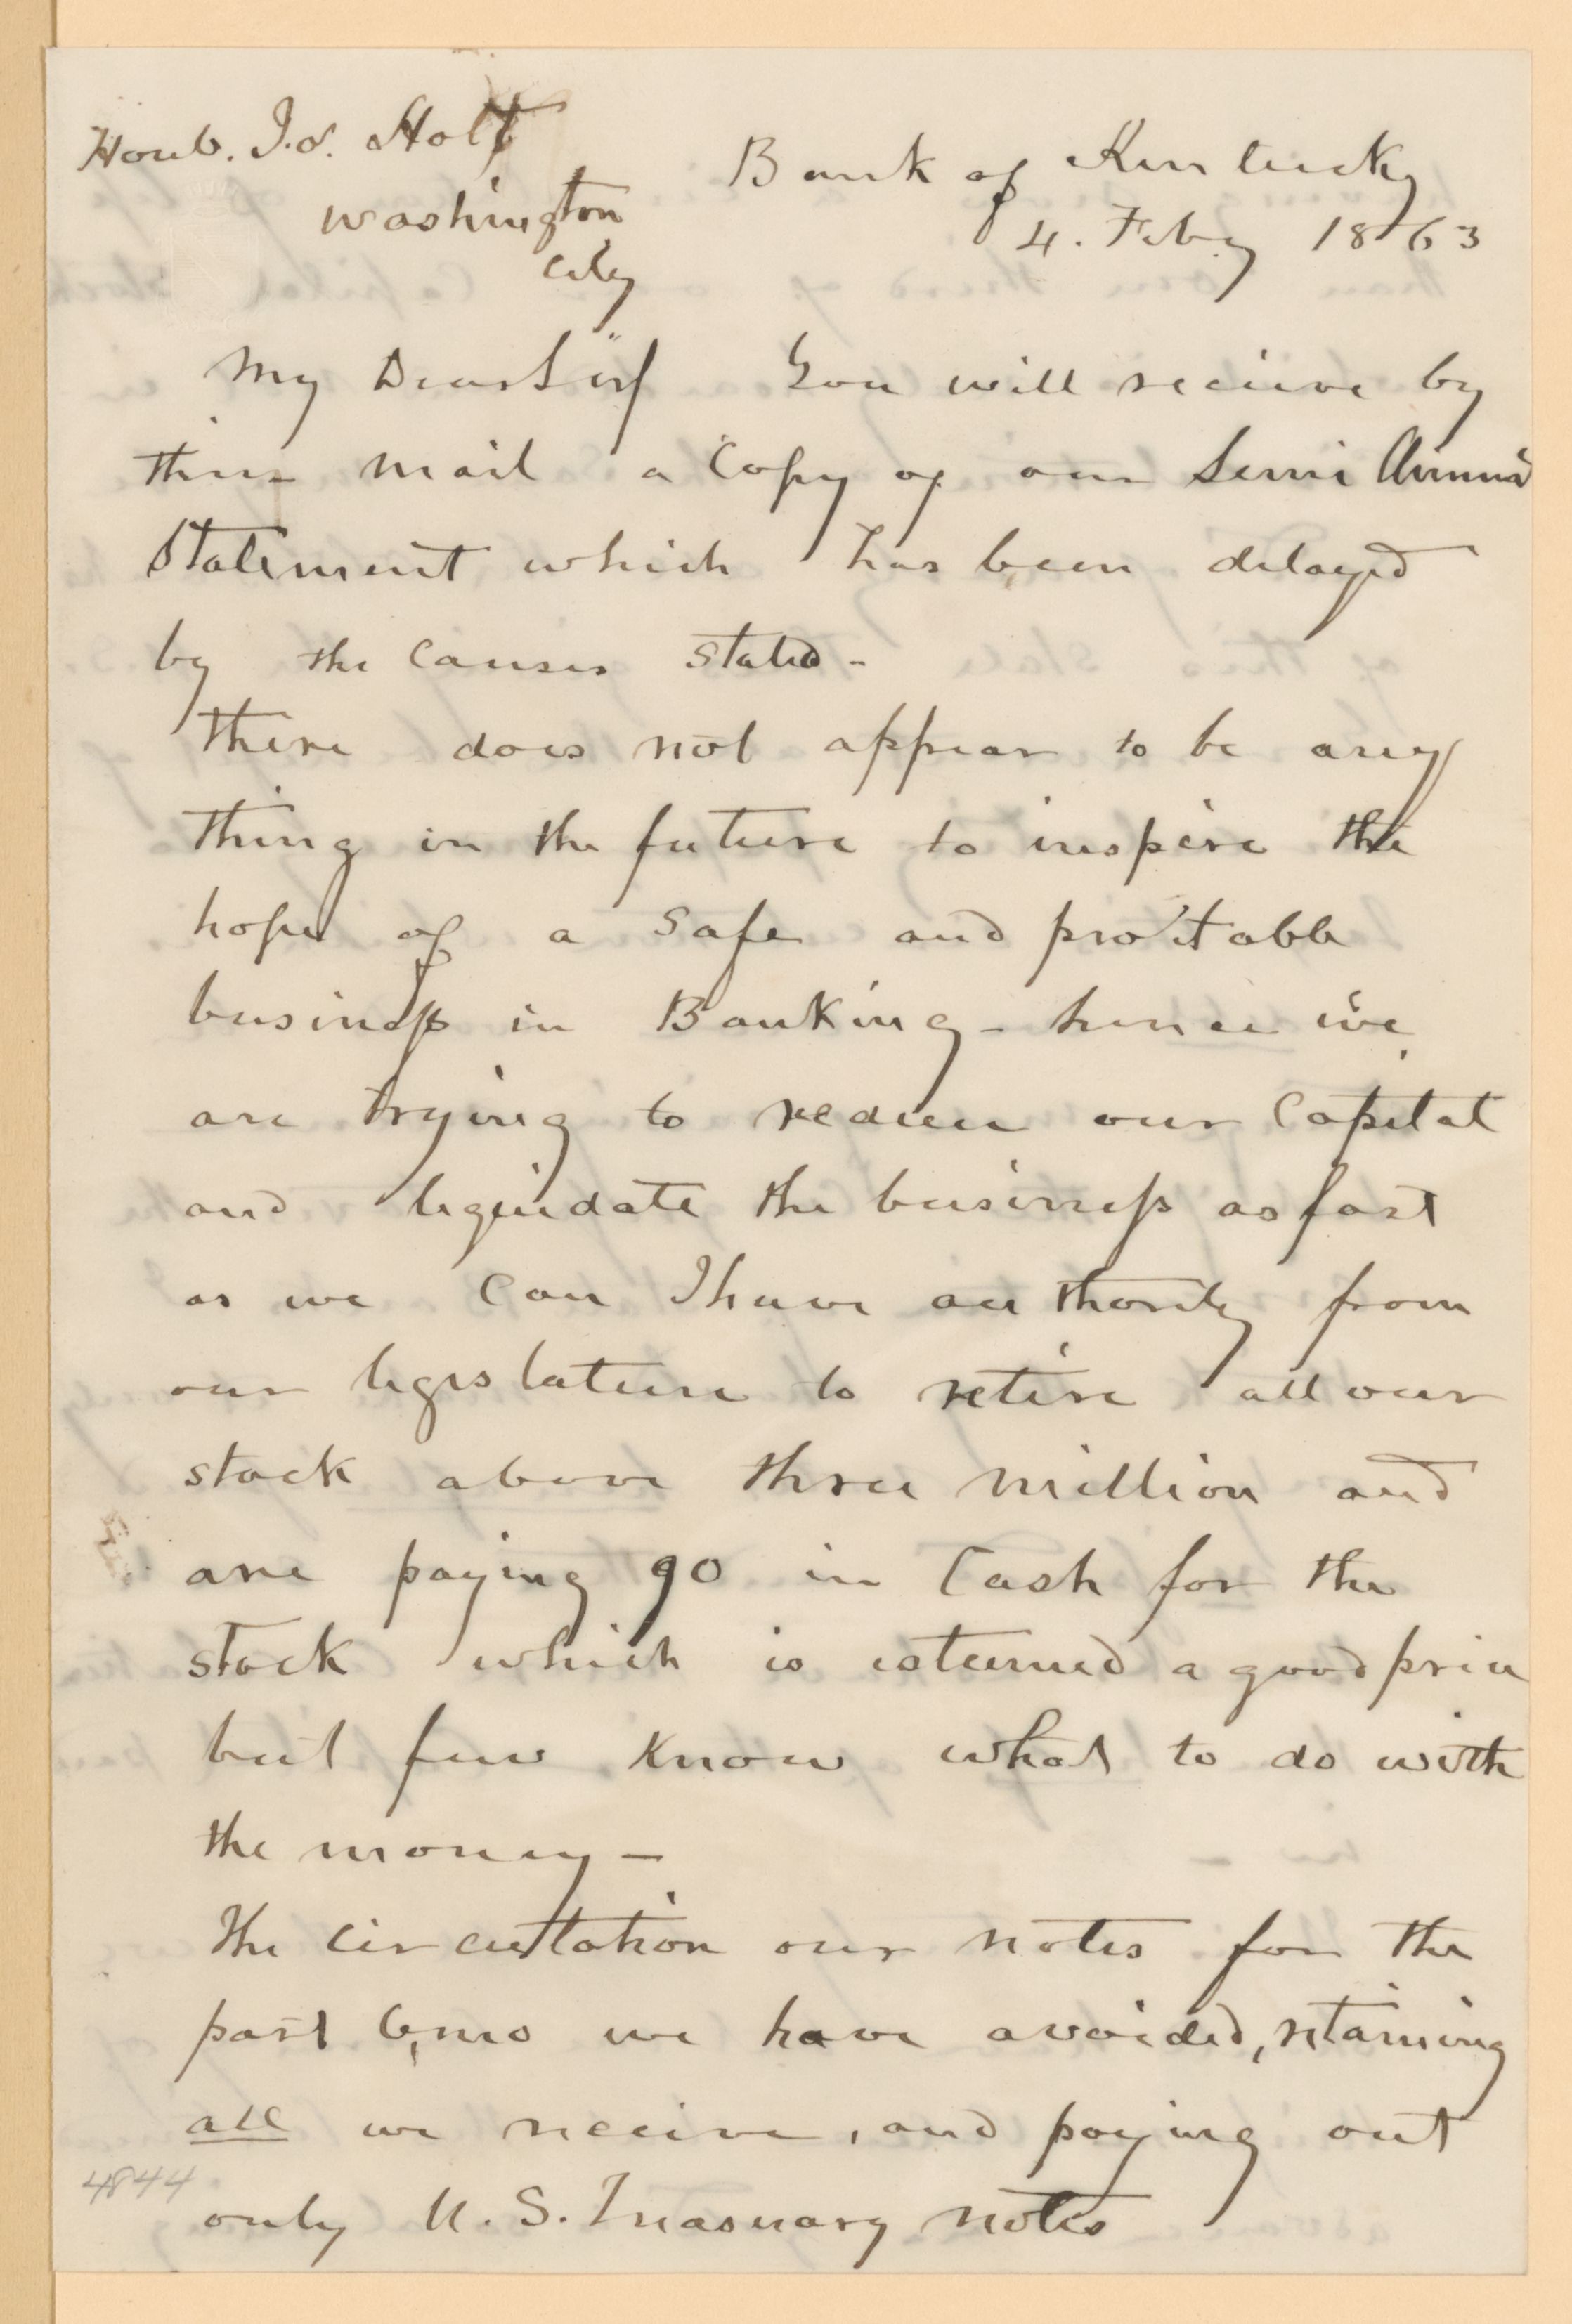 Honb. J.S. Holt
Washington
City
Bank of Kentucky
4. Feby 1863
My Dear Sir You will receive by
this mail a Copy of our Semi Annual
Statement which has been delayed
by the causes stated -
there does not appear to be any
thing in the future to inspire the
hope of a safe and profitable
business in Banking - hence we
are trying to reduce our Capital
and liquidate the business as fast
as we can I have authority from
our legislature to retire all our
stock above three million and
are paying 90 in Cash for the
stock which is esteemed a good price
but few know what to do with
the money -
The circulation our notes for the
past 6, mo we have avoided, retaining
all we receive, and paying out
only U.S. Treasuary notes
4844